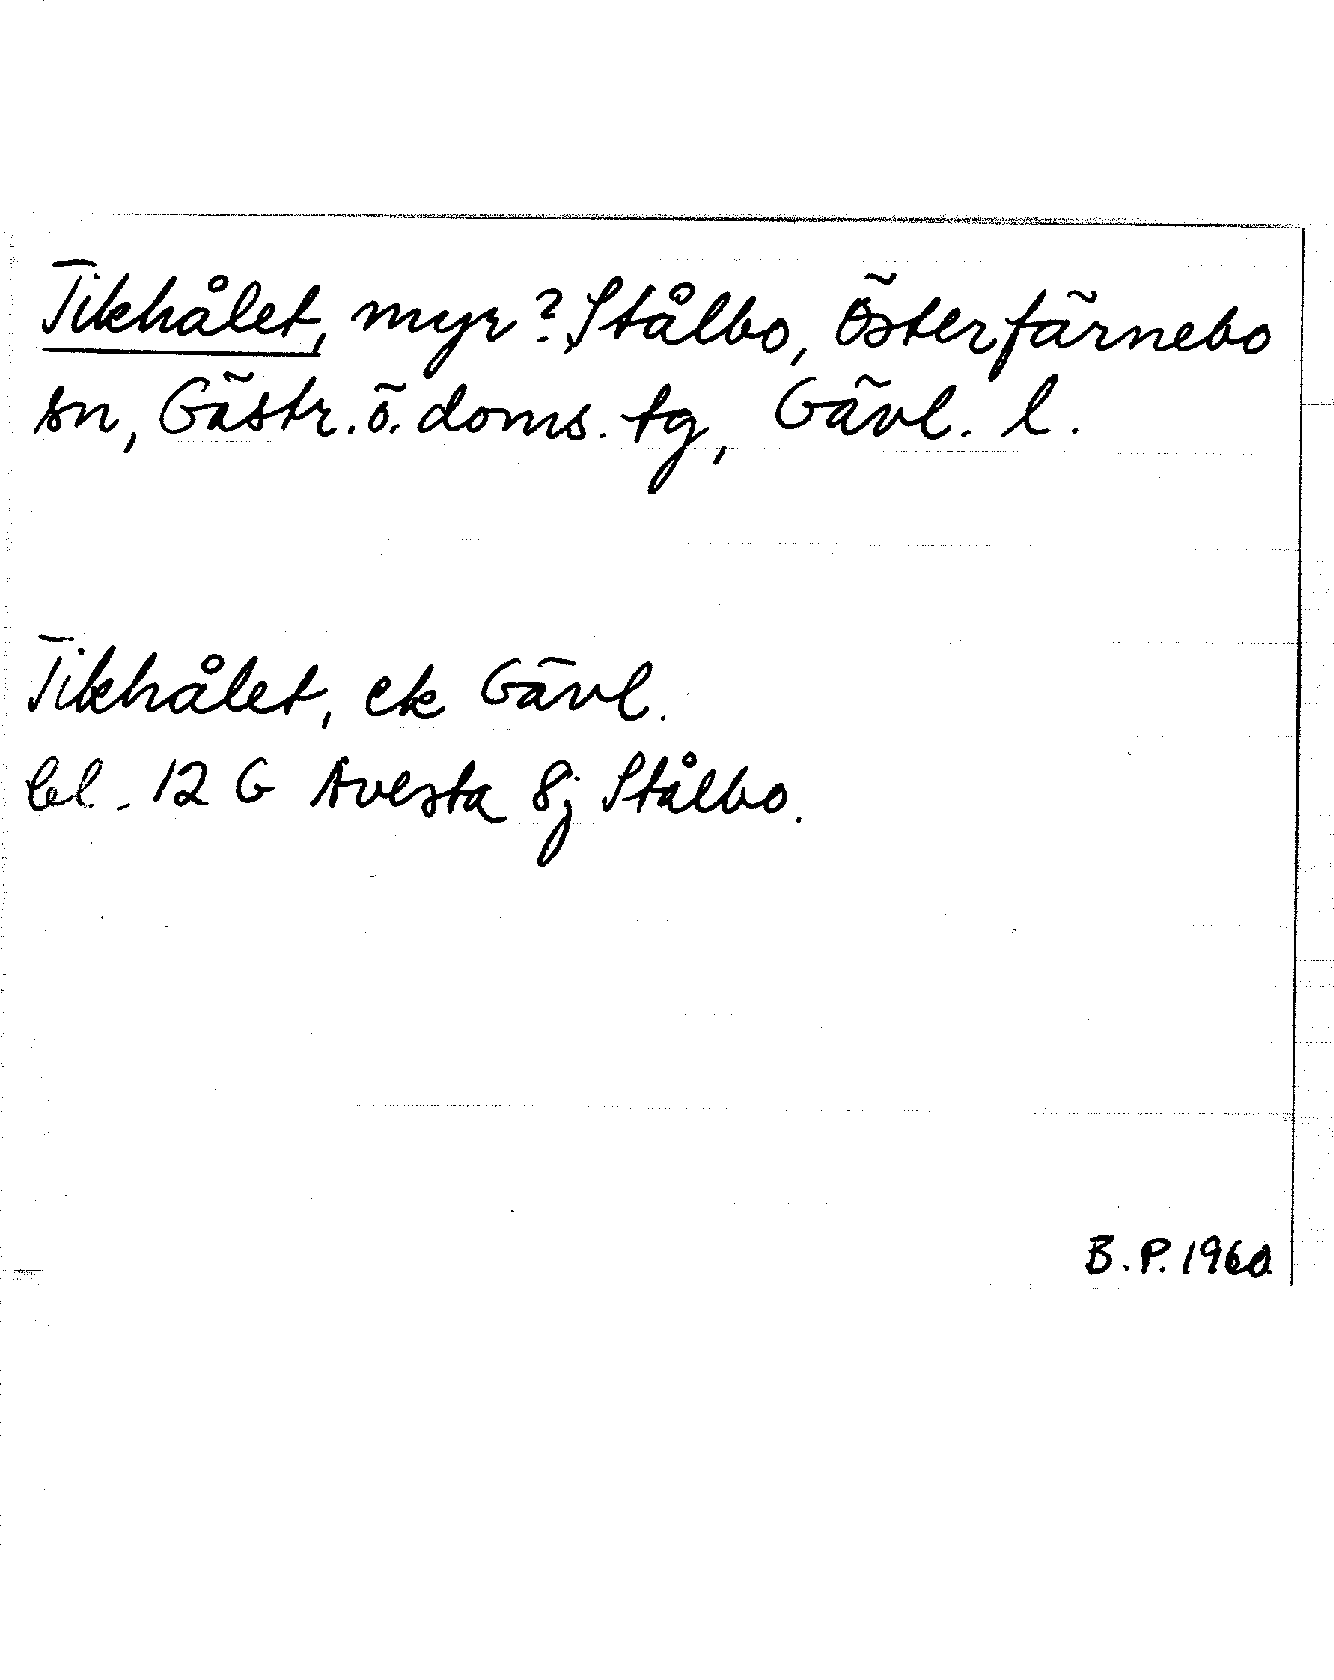 Tikhålet, myr? Stålbo, Österfärnebo
sn, Gästr. ö. doms. tg, Gävl. l.
Tikhålet, ek Gävl.
bl. 12 G Avesta 8j Stålbo.
B.P. 1960